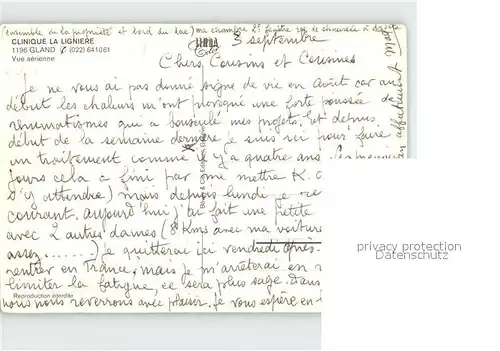 (ensemble de la propriété et bord du lac) ma chambre 2e fenêtre rez de chaussée à droite
CLINIQUE LA LIGNIERE
1196 GLAND (022) 641061
Vue aérienne
3 septembre
Chers Cousins et Cousines
Je ne vous ai pas donné signe de vie en Août car au
début les chaleurs m'ont provoqué une forte poussée de
rhumatismes qui a bousculé mes projets, et depuis
début de la semaine dernière je suis ici pour faire
un traitement comme il y a quatre ans
jours cela a fini par me mettre K.
d'y attendre) mais depuis lundi je
courant. aujourd'hui j'ai fait une petite
avec 2 autres dames (8 Kms avec ma voiture
assez ......) je quitterai ici vendredi après-
rentrer en France, mais je m'arrêterai en
limiter la fatigue, ce sera plus sage. Dans
Reproduction interdite
nous nous reverrons avec plaisir. Je vous espère en
affectueusement
privacy protection
Datenschutz